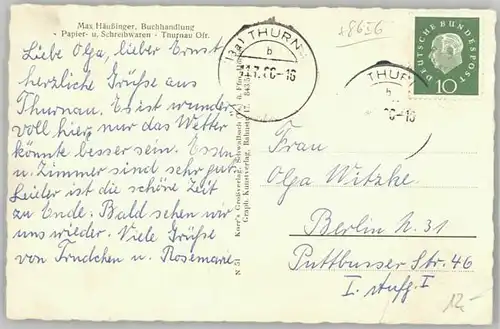 Max Häußinger, Buchhandlung
- Papier- u. Schreibwaren - Thurnau Ofr.
Liebe Olga, lieber Ernst
herzliche Grüße aus
Thurnau. Es ist wunder
voll hier, nur das Wetter
könnte besser sein. Essen
u. Zimmer sind sehr gut.
Leider ist die schöne Zeit
zu Ende. Bald sehen wir
uns wieder. Viele Grüße
von Trudchen u. Rosemarie
N 51
(13a) THURN
b
.7.60-16
THUR
b
60-16
DEUTSCHE BUNDESPOST
10
Frau
Olga Witzke.
Berlin N. 31
Puttbusser Str. 46
I. Aufg. I
12.-